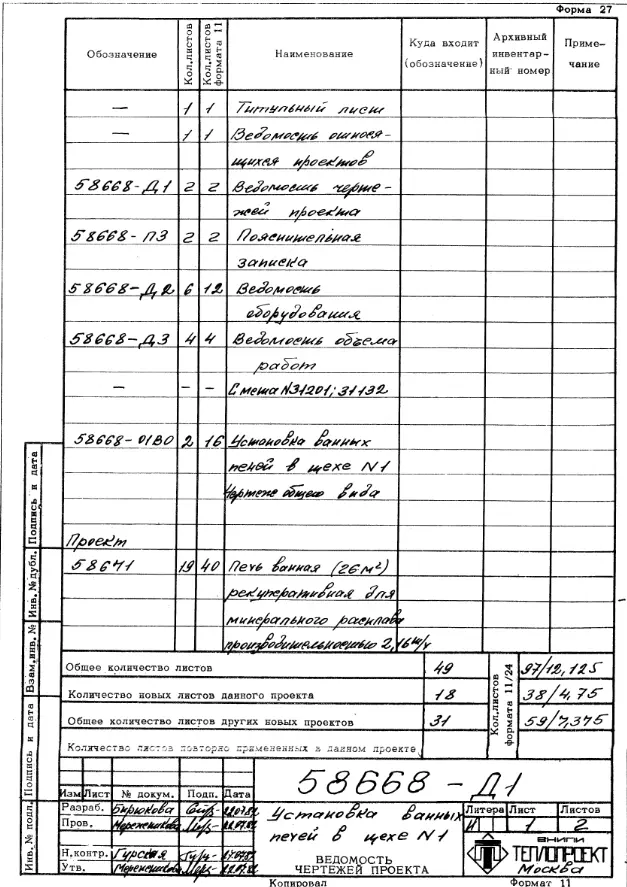 Форма 27
Обозначение Кол.листов Кол.листов формата 11 Наименование Куда входит (обозначение) Архивный инвентарный номер Примечание
— 1 1 Титульный лист
— 1 1 Ведомость относя-
щихся проектов
58668-Д1 2 2 Ведомость черте-
жей проекта
58668-ПЗ 2 2 Пояснительная
записка
58668-Д2 6 12 Ведомость
оборудования
58668-Д3 4 4 Ведомость объема
работ
— — — Смета N31201; 31132
58668-01ВО 2 16 Установка ванных
печей в цехе N1
Чертеж общего вида
Проект
58671 19 40 Печь ванная (26м²)
рекуперативная для
минерального расплава
производительностью 2,16т/ч
Общее количество листов 49
Количество новых листов данного проекта 18
Общее количество листов других новых проектов 31
Количество листов повторно примененных в данном проекте
Кол.листов формата 11/24
97/12,125
38/4,75
59/7,375
Инв.№ подл. Подпись и дата Взам.инв.№ Инв.№ дубл. Подпись и дата
58668-Д1
Изм Лист № докум. Подп. Дата
Разраб. Бирюкова
Пров.
Н.контр. Гурская
Утв.
Установка ванных
печей в цехе N1
ВЕДОМОСТЬ
ЧЕРТЕЖЕЙ ПРОЕКТА
Литера Лист Листов
И 1 2
ВНИПИ
ТЕПЛОПРОЕКТ
Москва
Копировал Формат 11